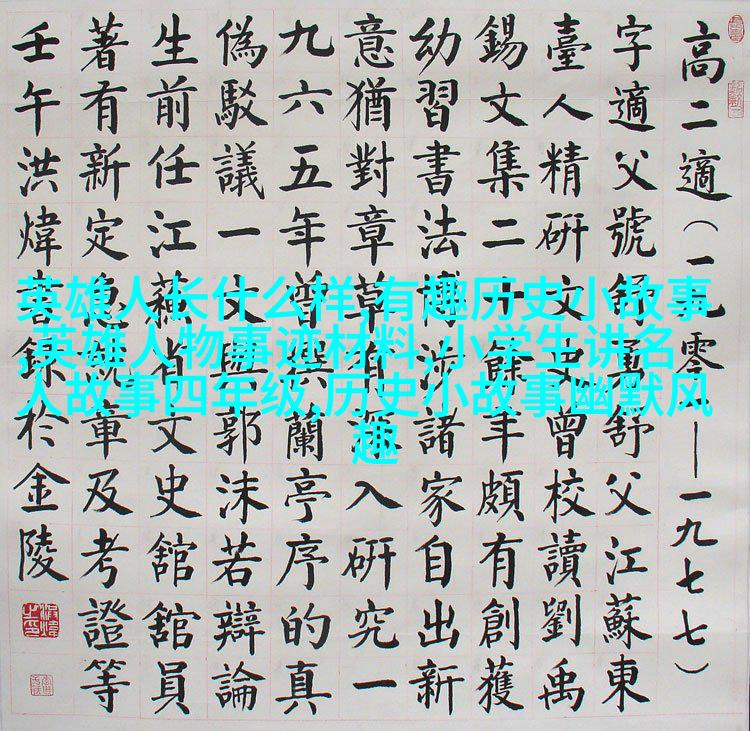 高二適（一九零—一九七七）
字適父號舒舒父江蘇東
臺人精研文史曾校讀劉禹
錫文集二十餘年頗有創獲
幼習書法博涉諸家自出新
意猶對章草有深入研究一
九六五年曾撰蘭亭序的真
偽駁議一文與郭沫若辯論
生前任江蘇省文史舘舘員
著有新定急就章及考證等
壬午洪煒書錄於金陵
英雄人长什么样,有趣历史小故事
,英雄人物事迹材料,小学生讲名
人故事四年级,历史小故事幽默风
趣